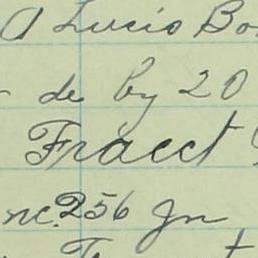 A Lucio Bo
de by 20
Fracct
nc. 256 Jn